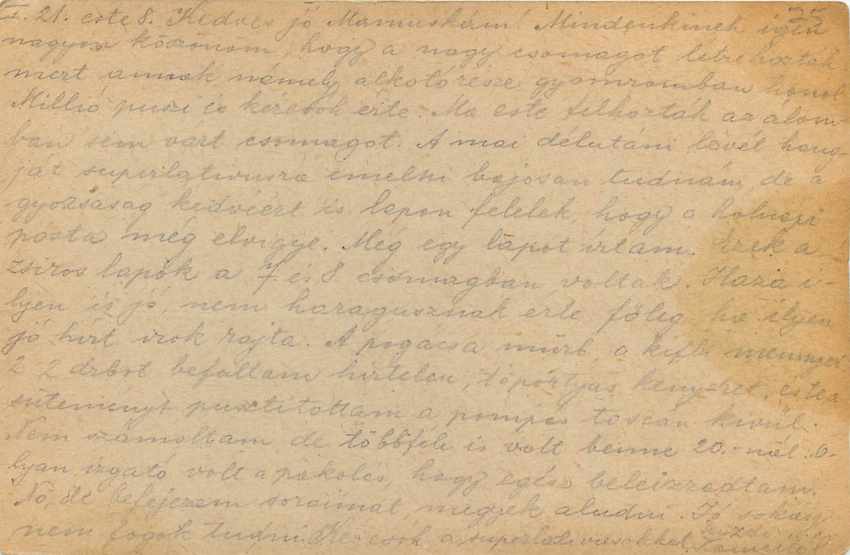 I. 21. este 8. Kedves jó Mamuskám! Mindenkinek igen
nagyon köszönöm, hogy a nagy csomagot létrehozták
mert annak némely alkotórésze gyomromban honol.
Millió puszi és kézcsók érte. Ma este felhozták az álom-
ban sem várt csomagot. A mai délutáni levél hang-
ját superlativusra emelni bajosan tudnám, de a
gyorsaság kedvéért is lapon felelek, hogy a holnapi
posta még elvigye. Még egy lapot írtam. Ezek a
zsíros lapok a 7 és 8 csomagban voltak. Haza i-
lyen is jó, nem haragusznak érte főleg ha ilyen
jó hírt írok rajta. A pogácsa omlós, a kifli mennyei
2 2 drbot befaltam hirtelen, töpörtyűs kenyeret, és tea
süteményt pusztítottam a pompás toscan kívül.
Nem számoltam de többféle is volt benne 20.-nál. o-
lyan izgató volt a pakolás, hogy egész beleizzadtam.
Nó, de befejezem soraimat megyek aludni. Jó sokáig
nem fogok tudni. Kézcsók a superlativusokkal